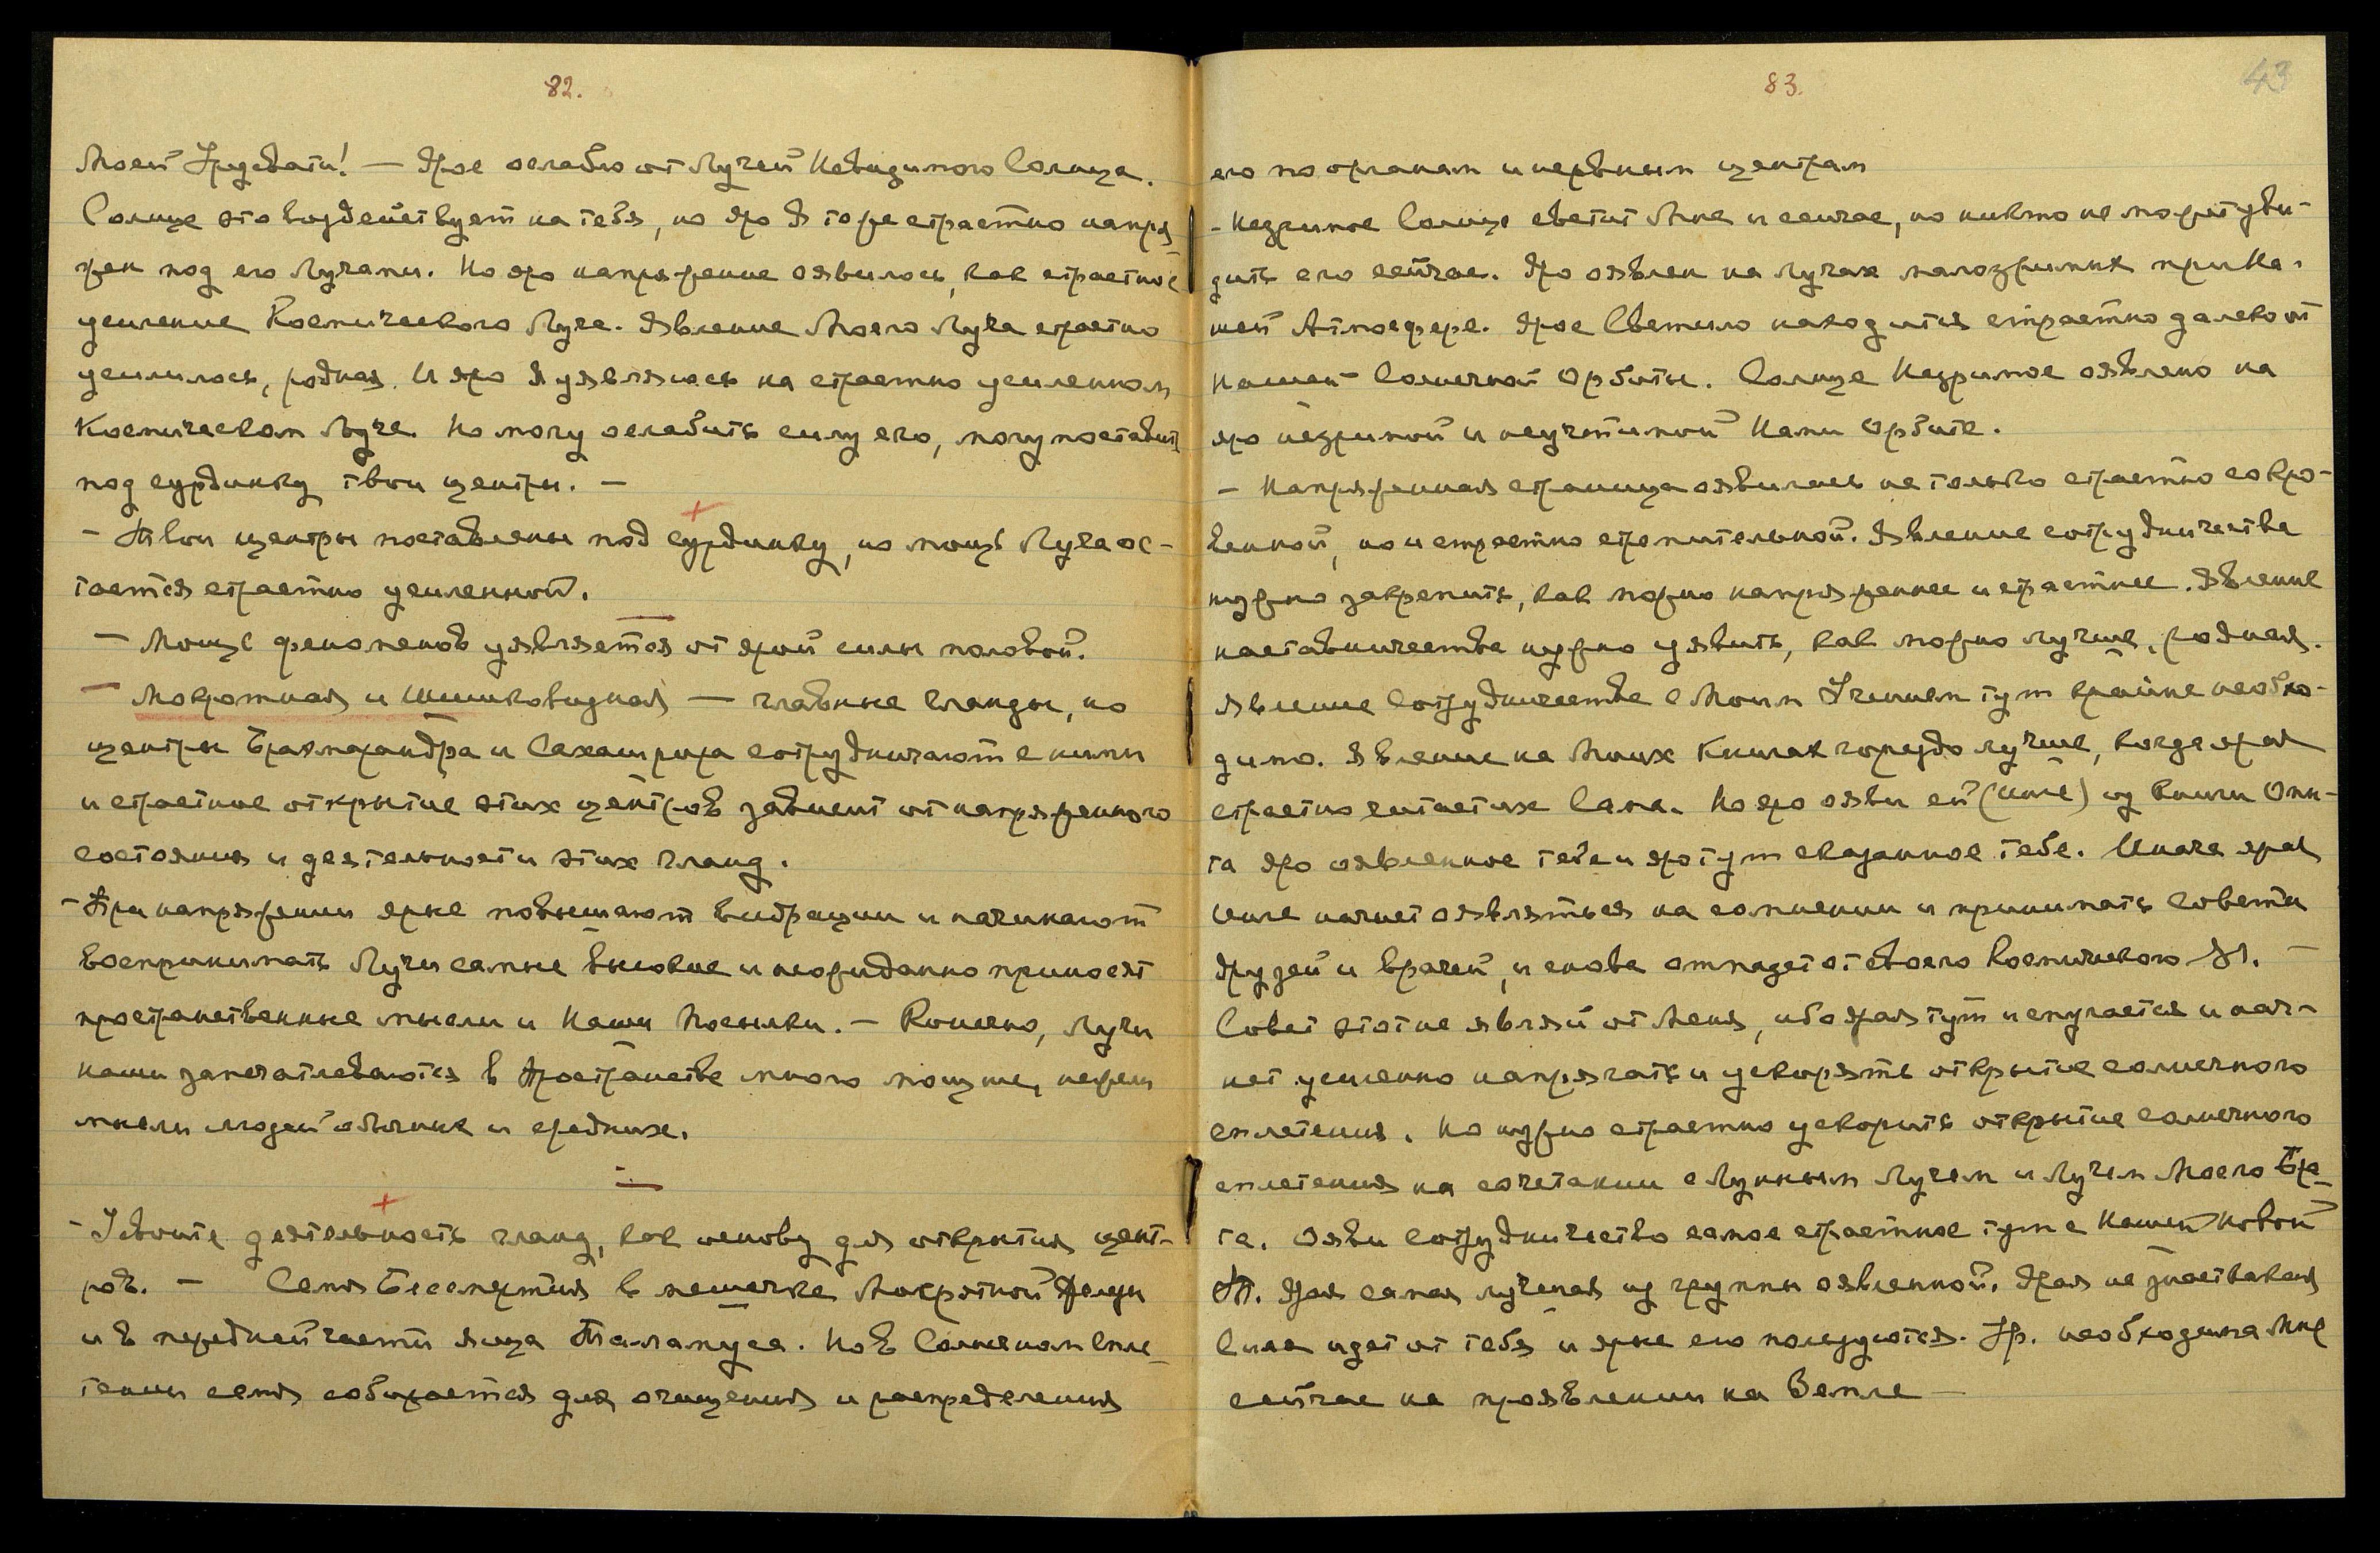 82.
Моей Урусвати! — Ярое ослабло от Лучей Невидимого Солнца.
Солнце это воздействует на тебя, но яро Я тоже страстно напря
жен под его Лучами. Но яро напряжение оявилось, как страстное
усиление Космического Луча. Явление Моего Луча страстно
усилилось, родная. И яро Я уявляюсь на страстно усиленном
Космическом Луче. Но могу ослабить силу его, могу поставить
под сурдинку твои центры. —
- Твои центры поставлены под сурдинку, но мощь Луча ос-
тается страстно усиленной.
— Мощь феноменов уявляется от ярой силы половой.
— Мокротная и Шишковидная — главные гланды, но
центры Брамарандра и Сахасрара сотрудничают с ними
и страстное открытие этих центров зависит от напряженного
состояния и деятельности этих гланд.
- При напряжении ярые повышают вибрации и начинают
воспринимать Лучи самые высокие и неожиданно приносят
пространственные мысли и Наши Посылки. — Конечно, Лучи
наши запечатлеваются в Пространстве много мощнее, нежели
мысли людей обычных и средних.
- Усвоите деятельность гланд, как основу для открытия цент-
ров. — Семя Бессмертия в мешечке Мокротной Железы
и в передней части яйца Таламуса. Но в Солнечном Спле-
тении семя собирается для очищения и распределения
83.
43
его по органам и нервным центрам
- Незримое Солнце светит Мне и сейчас, но никто не может уви-
дить его сейчас. Яро оявлен на лучах малозримых при На-
шей Атмосфере. Ярое Светило находится страстно далеко от
Нашей Солнечной Орбиты. Солнце Незримое оявлено на
яро незримой и неучтимой Нами Орбите.
- Напряженная страница оявилась не только страстно сокро-
венной, но и страстно стремительной. Явление сотрудничества
нужно закрепить, как можно напряженнее и страстнее. Явление
наставничества нужно уявить, как можно лучше, родная.
Явление Сотрудничества с Моим Учением тут крайне необхо-
димо. Явление на Моих Книгах гораздо лучше, когда ярая
страстно читает их Сама. Но яроояви ей (Инге) из Книги Опы-
та яро оявленное тебе и яро тут сказанное тебе. Иначе ярая
Инге начнет оявляться на сомнении и принимать Советы
друзей и врачей, и снова отпадет от своего Космического Я. —
Совет этот не являй от Меня, ибо ярая тут испугается и нач-
нет усиленно напрягать и ускорять открытие солнечного
сплетения. Но нужно страстно ускорить открытие солнечного
сплетения на сочетании с Лунным Лучем и Лучем Моего Бра-
та. Ояви сотрудничество самое страстное тут с Нашей Новой
Т. Ярая самая лучшая из группы оявленной. Ярая не знает какая
Сила идет от тебя и ярые ею пользуются. Ур. необходима Мне
сейчас на проявлении на Земле —